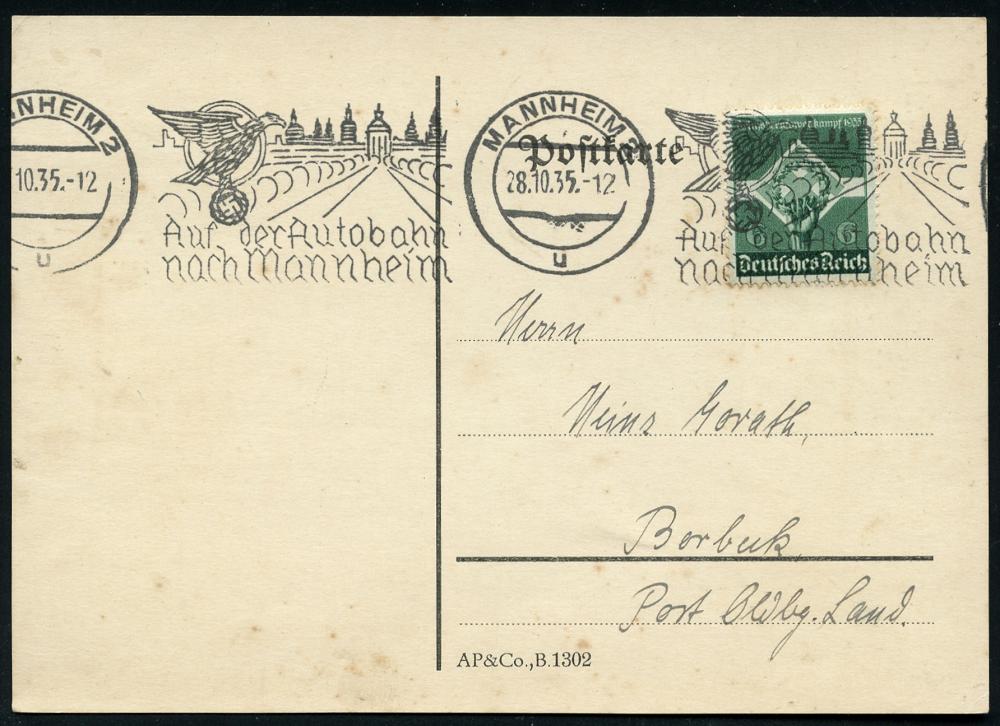 NNHEIM 2
10.35.-12
u
Auf der Autobahn
nach Mannheim
MANNHEIM
28.10.35.-12
u
Postkarte
Auf der Autobahn
nach Mannheim
1935
6 6
Deutsches Reich
Herrn
Heinz Gorath,
Borbeck
Post Oldbg. Land.
AP&Co.,B.1302